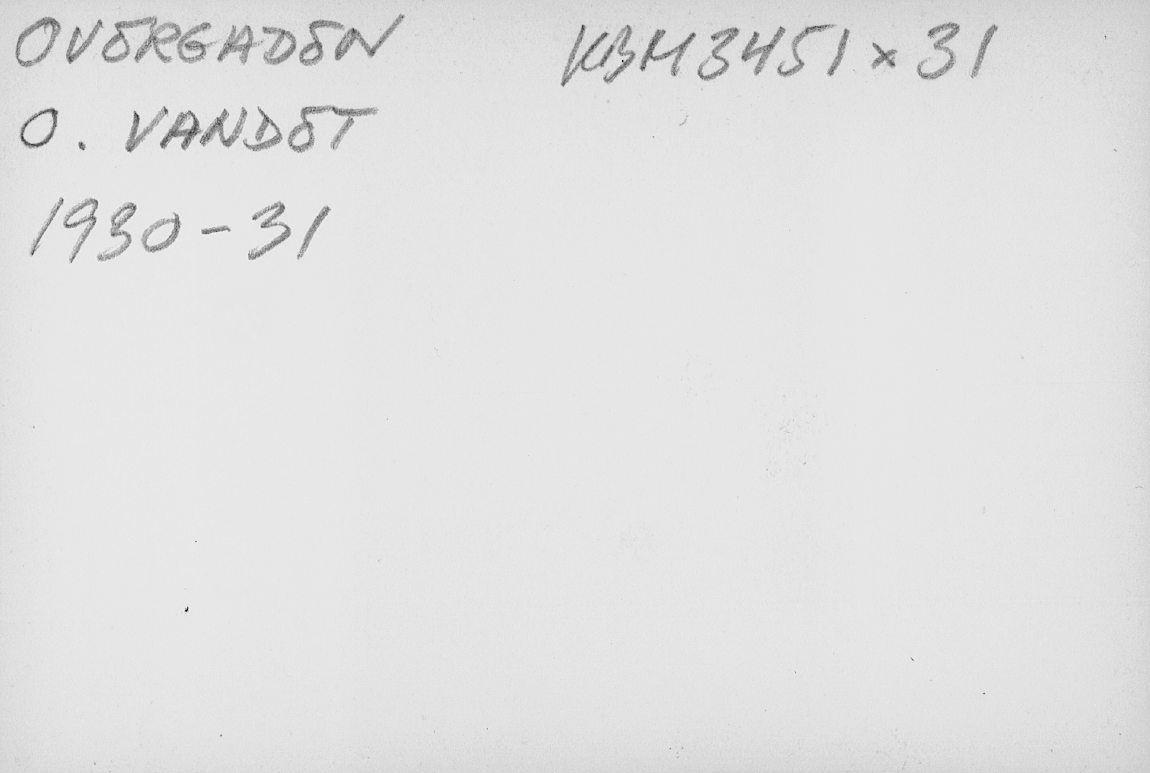 OVERGADEN
O. VANDET
1930-31
KBM3451x31